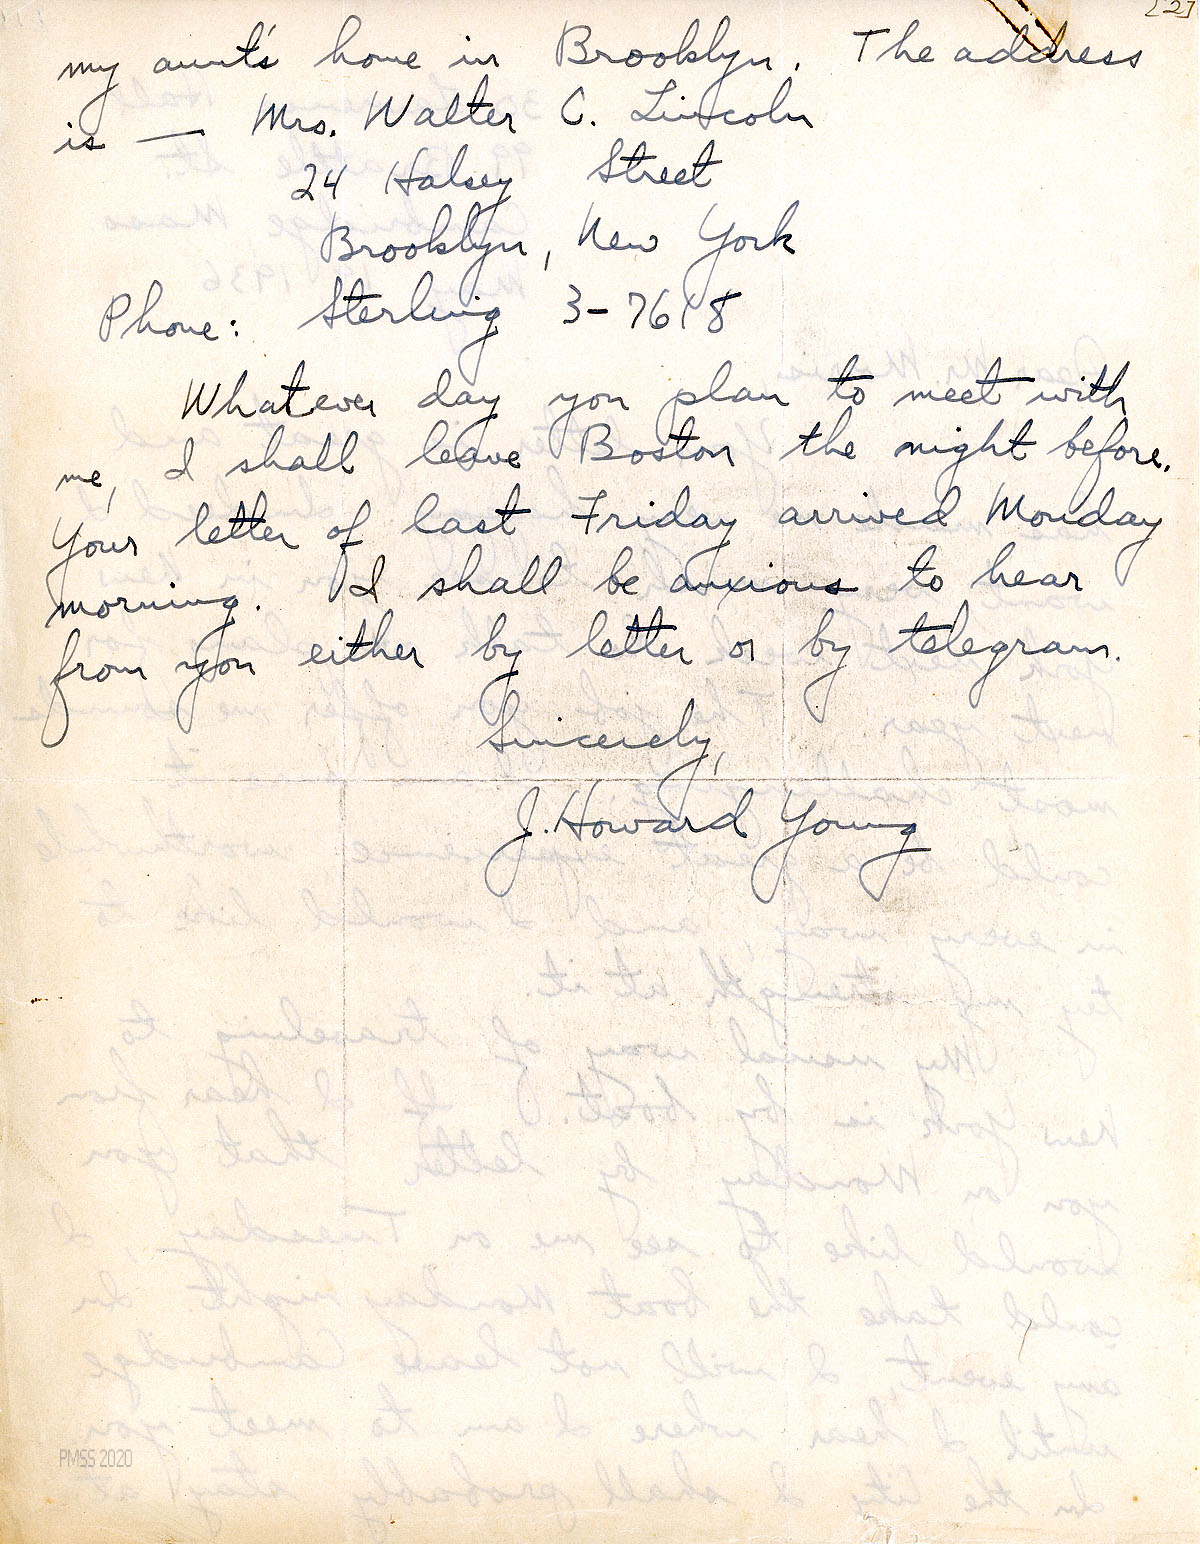 [2]
my aunt's home in Brooklyn. The address
is — Mrs. Walter C. Lincoln
24 Halsey Street
Brooklyn, New York
Phone: Sterling 3-7618
Whatever day you plan to meet with
me, I shall leave Boston the night before.
Your letter of last Friday arrived Monday
morning. I shall be anxious to hear
from you either by letter or by telegram.
Sincerely,
J. Howard Young
PMSS 2020